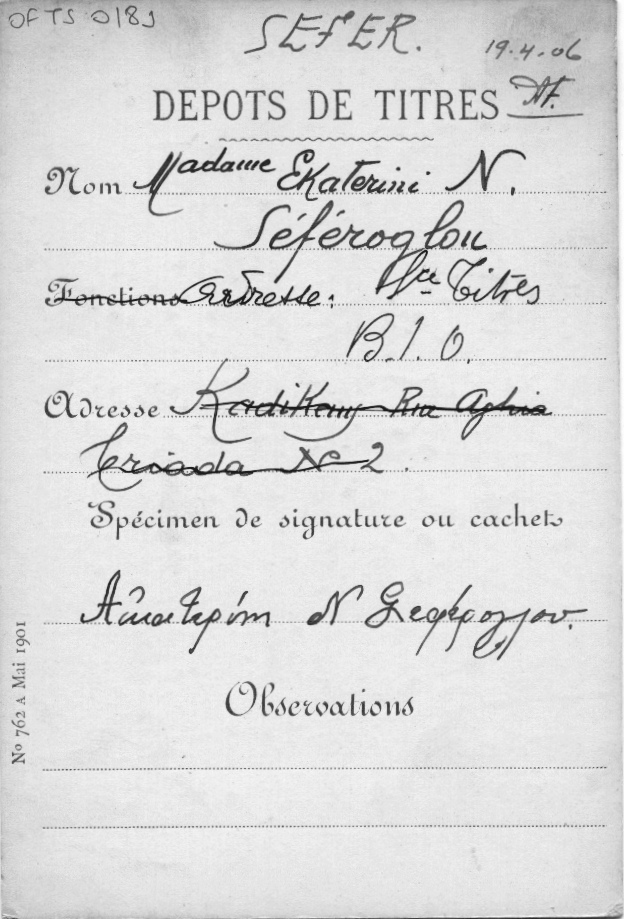 OFTS 0189
SEFER.
19.4.06
DEPOTS DE TITRES
Nom Madame Ekaterini N.
Séféroglou
Fonctions Adresse: Sce Titres
B.I.O.
Adresse Kadikeuy Rue Aghia
Triada No 2.
Spécimen de signature ou cachet
Αἰκατερίνη Ν Σεφέρογλου.
Observations
No 762 A Mai 1901